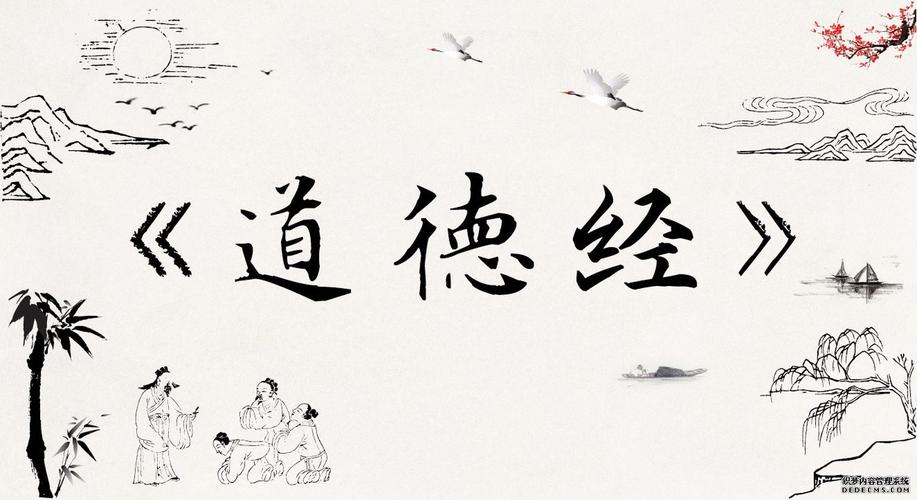 《道德经》
织梦内容管理系统
DEDECMS.COM